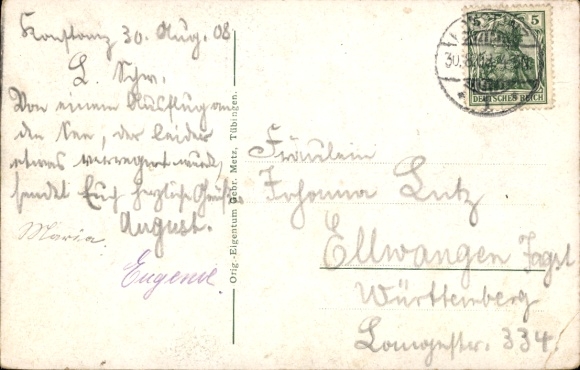 Konstanz 30. Aug. 08
L. Schw.
Von einem Ausflug an
den See, der leider
etwas verregnet wurde,
sendet Euch herzliche Grüße
August.
Maria.
Eugenie.
Orig.-Eigentum Gebr. Metz, Tübingen.
5
DEUTSCHES REICH
Fräulein
Johanna Lutz
Ellwangen Jagst
Württemberg
334